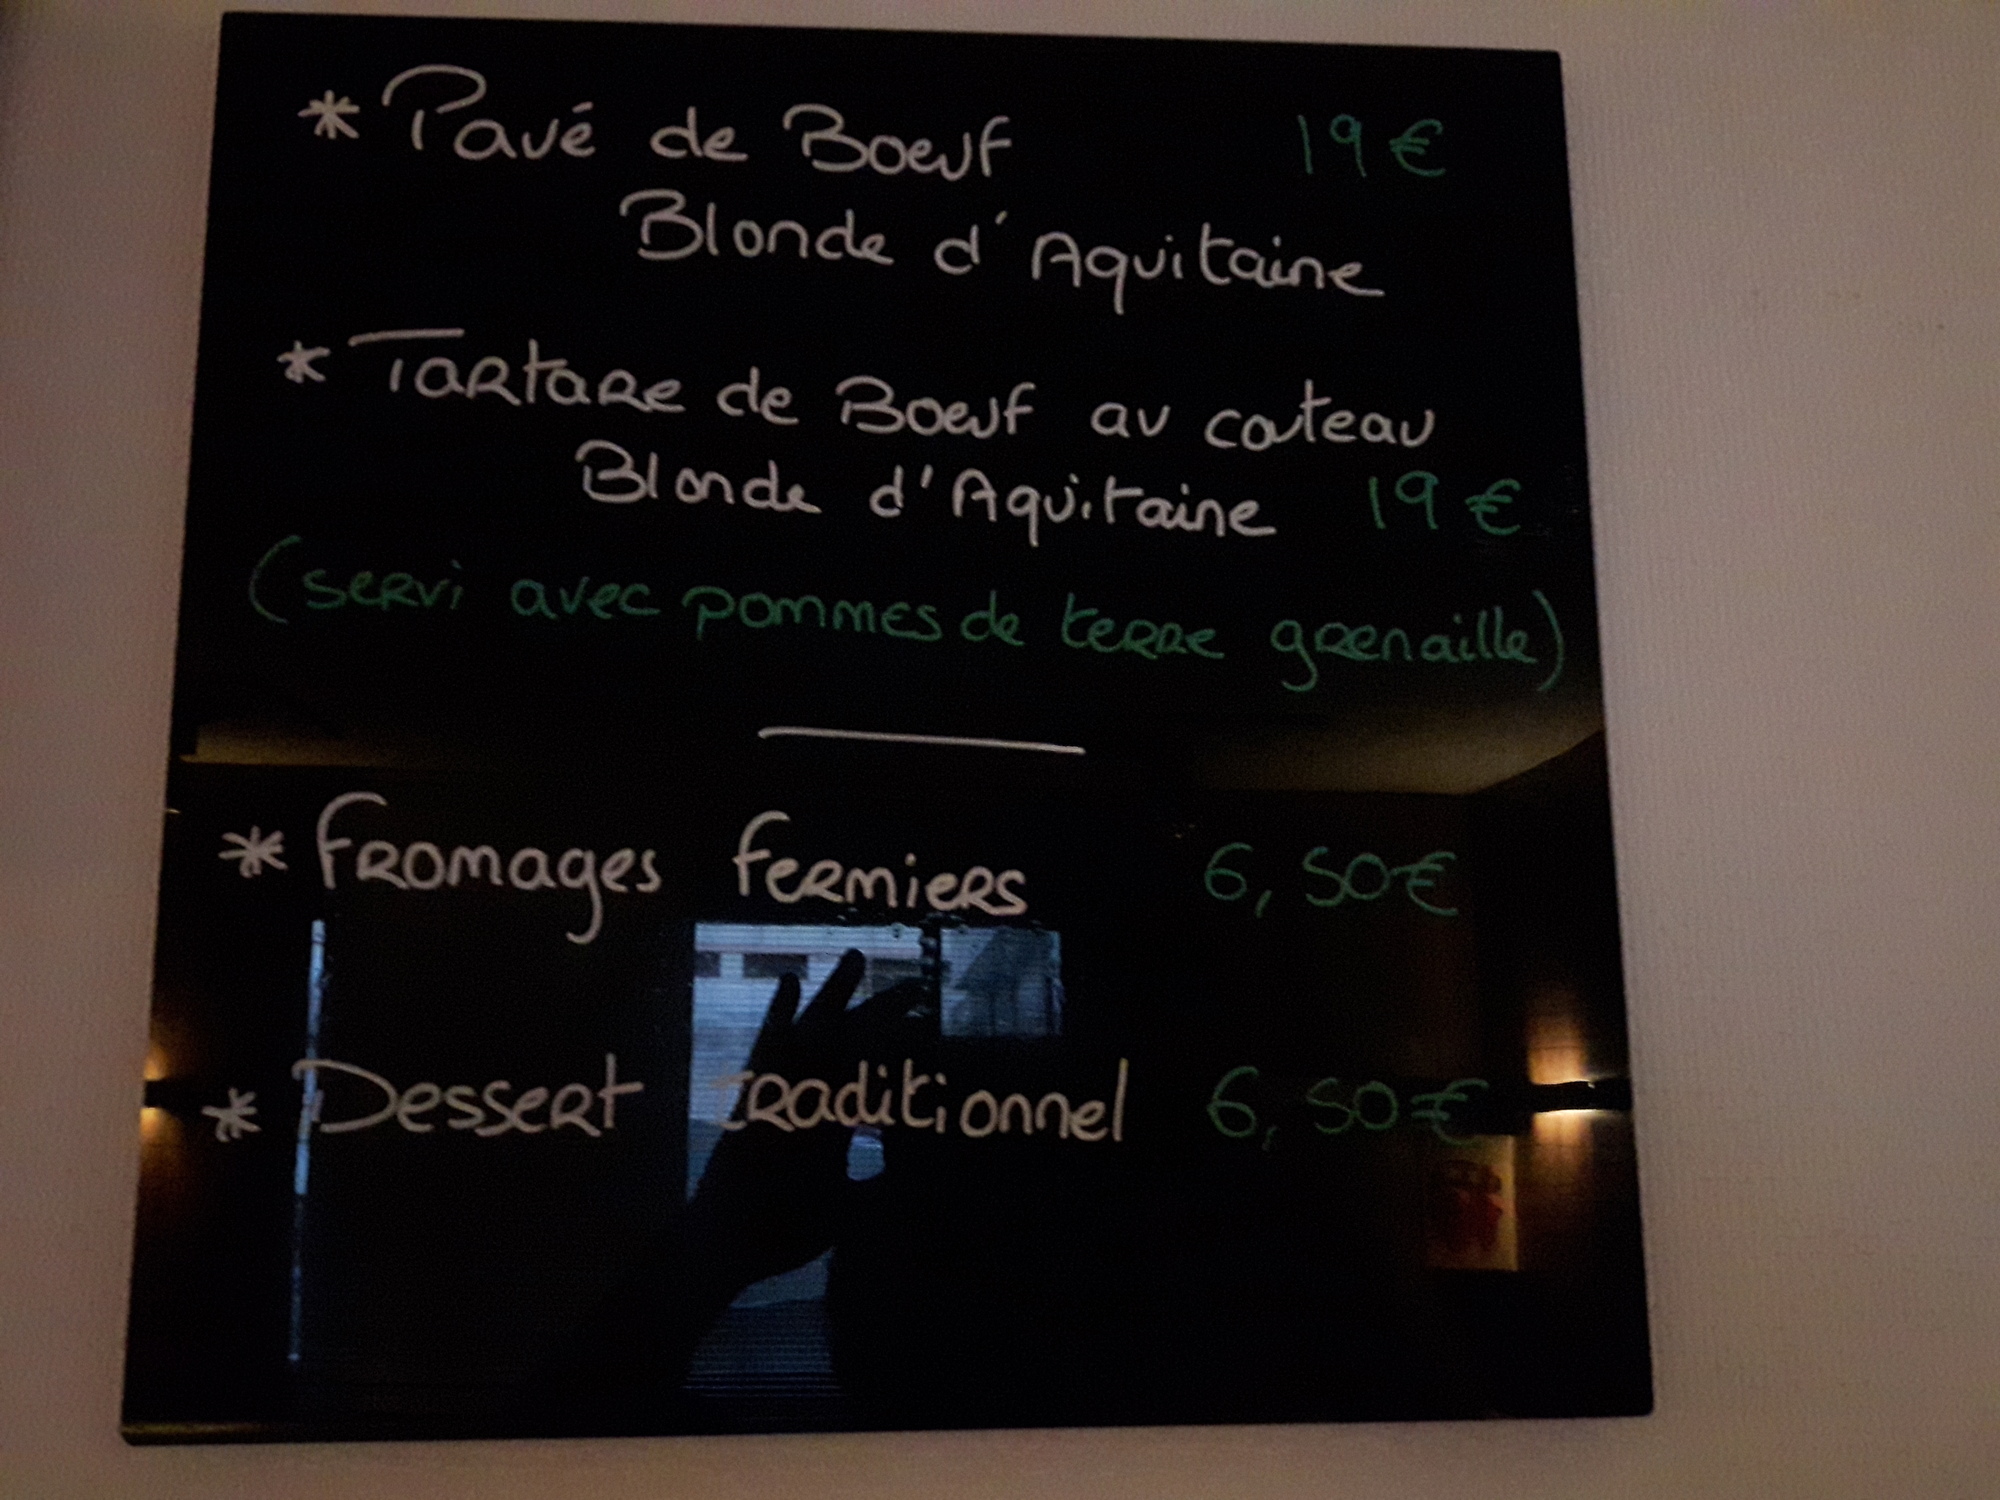 * Pavé de Boeuf 19€
Blonde d'Aquitaine
* Tartare de Boeuf au couteau
Blonde d'Aquitaine 19€
(servi avec pommes de terre grenaille)
* Fromages fermiers 6,50€
* Dessert traditionnel 6,50€